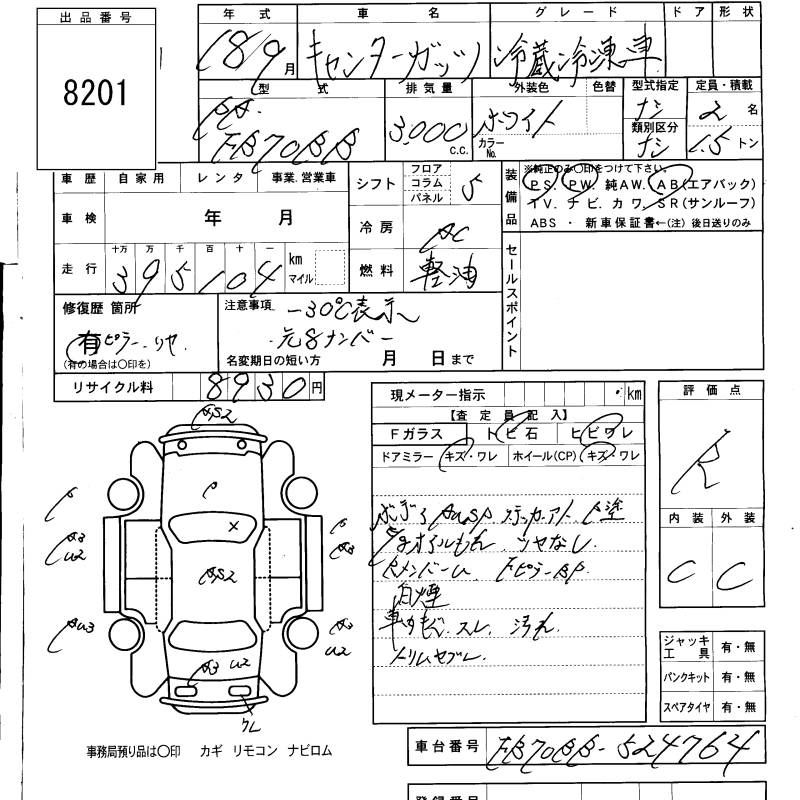 出品番号
8201
年式 車名 グレード ドア 形状
18/9月 キャンターガッツ 冷蔵冷凍車
型式 排気量 外装色 色替 型式指定 定員・積載
FB70BB 3,000 c.c. ホワイト カラーNo. ナシ 2名
類別区分 ナシ 1.5トン
車歴 自家用 レンタ 事業.営業車
シフト フロア コラム パネル 5
装備品 ※純正のみ〇印をつけて下さい。
PS. PW. 純AW. AB(エアバック)
TV. ナビ. カワ. SR(サンルーフ)
ABS ・ 新車保証書←(注) 後日送りのみ
車検 年 月
冷房 AC
走行 十万 万 千 百 十 一 km マイル
395104
燃料 軽油
セールスポイント
修復歴 箇所
有 ピラー.リヤ.
(有の場合は〇印を)
注意事項 -30℃表示
元8ナンバー
名変期日の短い方 月 日まで
リサイクル料 8930円
現メーター指示 km
【査定員記入】
Fガラス トビ石 ヒビワレ
ドアミラー キズ・ワレ ホイール(CP) キズ・ワレ
評価点
R
内装 外装
C C
ボディ ステッカーアト
オイルもれ ツヤなし.
白煙
スレ. 汚れ
A3 U2
ワレ
ジャッキ工具 有・無
パンクキット 有・無
スペアタイヤ 有・無
事務局預り品は〇印 カギ リモコン ナビロム
車台番号 FB70BB-524764
登録番号